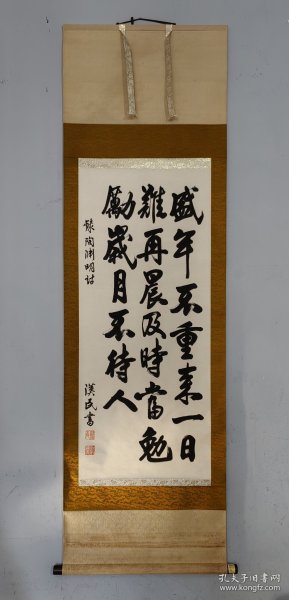 盛年不重来一日
難再晨及時當勉
勵歲月不待人
錄陶渊明诗
漢民書
孔夫子旧书网